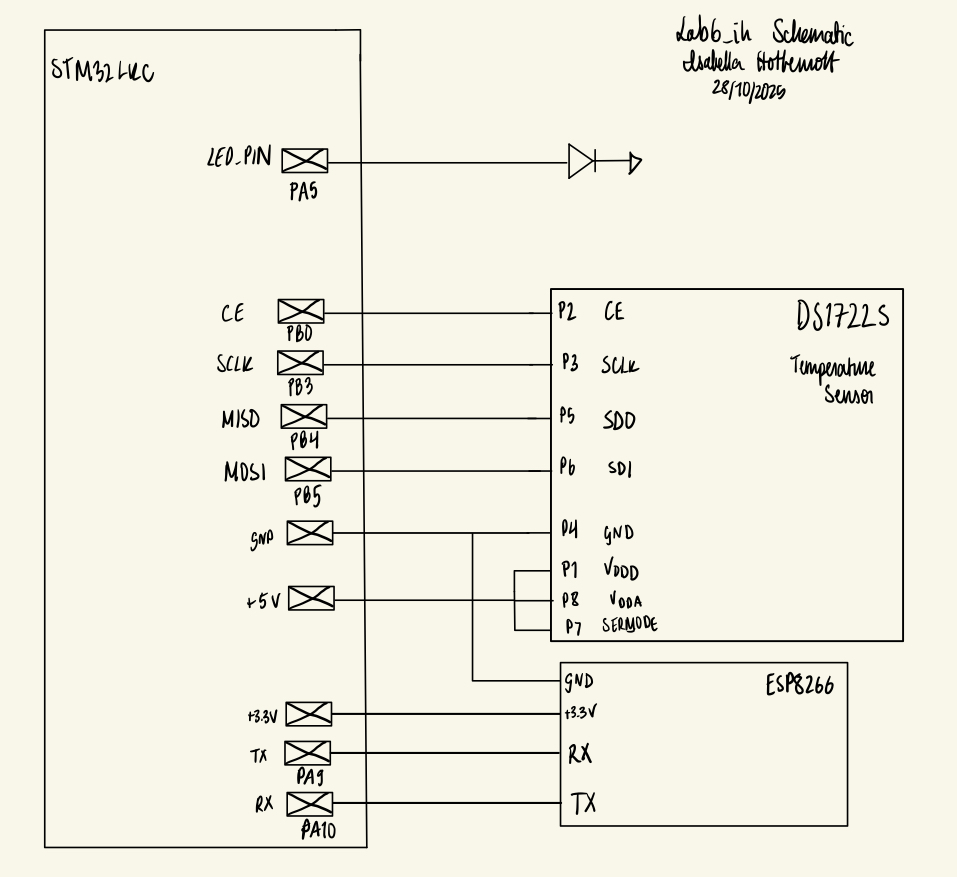 Lab6_ih Schematic
28/10/2025
LED_PIN
PA5
CE
PB0
SCLK
PB3
MISO
PB4
MOSI
PB5
GND
+5V
+3.3V
TX
PA9
RX
PA10
DS1722S
Temperature
Sensor
P2 CE
P3 SCLK
P5 SDO
P6 SDI
P4 GND
P1 VDDD
P8 VDDA
P7 SERMODE
ESP8266
GND
+3.3V
RX
TX